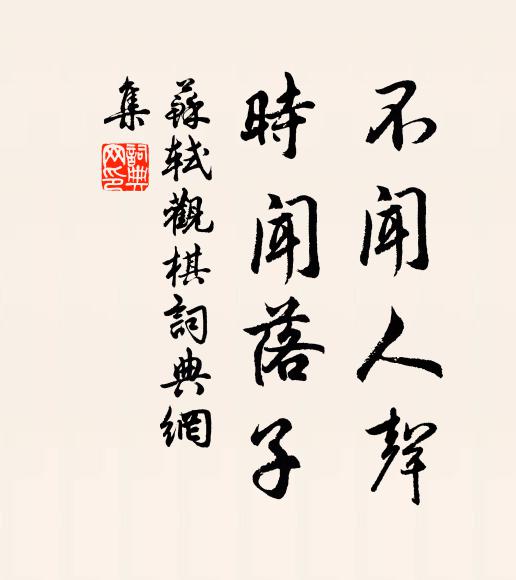 不聞人聲
時聞落子
蘇軾觀棋詞典網
集
詞典網印